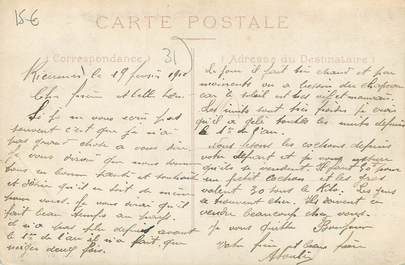 15€
CARTE POSTALE
(Correspondance)
31
(Adresse du Destinataire)
le 19 février 1910
Cher frère et belle
Si je ne vous écris pas
souvent c'est que je n'ai
pas grand chose a vous dire
je vous dirai que nous sommes
tous en bonne santé et souhait
et désire qu'il en soit de même
pour vous. Je vous dirai qu'il
fait beau temps au
il n'a pas plu depuis avant
le 1er de l'an il n'a fait que
neiger deux fois.
le jour il fait bon chaud et par
moments on a besoin du chapeau
car le soleil est
les nuits sont très froides je crois
qu'il a gelé toutes les nuits depuis
le 1er de l'an.
Nous tenons les cochons depuis
votre départ et je vous
qu'ils se vendent. Il faut 30 pour
un petit cochon et les gras
valent 30 sous le Kilo. Les
se trouvent cher. Ils doivent se
vendre beaucoup chez vous.
Je vous quitte Bonjour
votre frère et beau frère